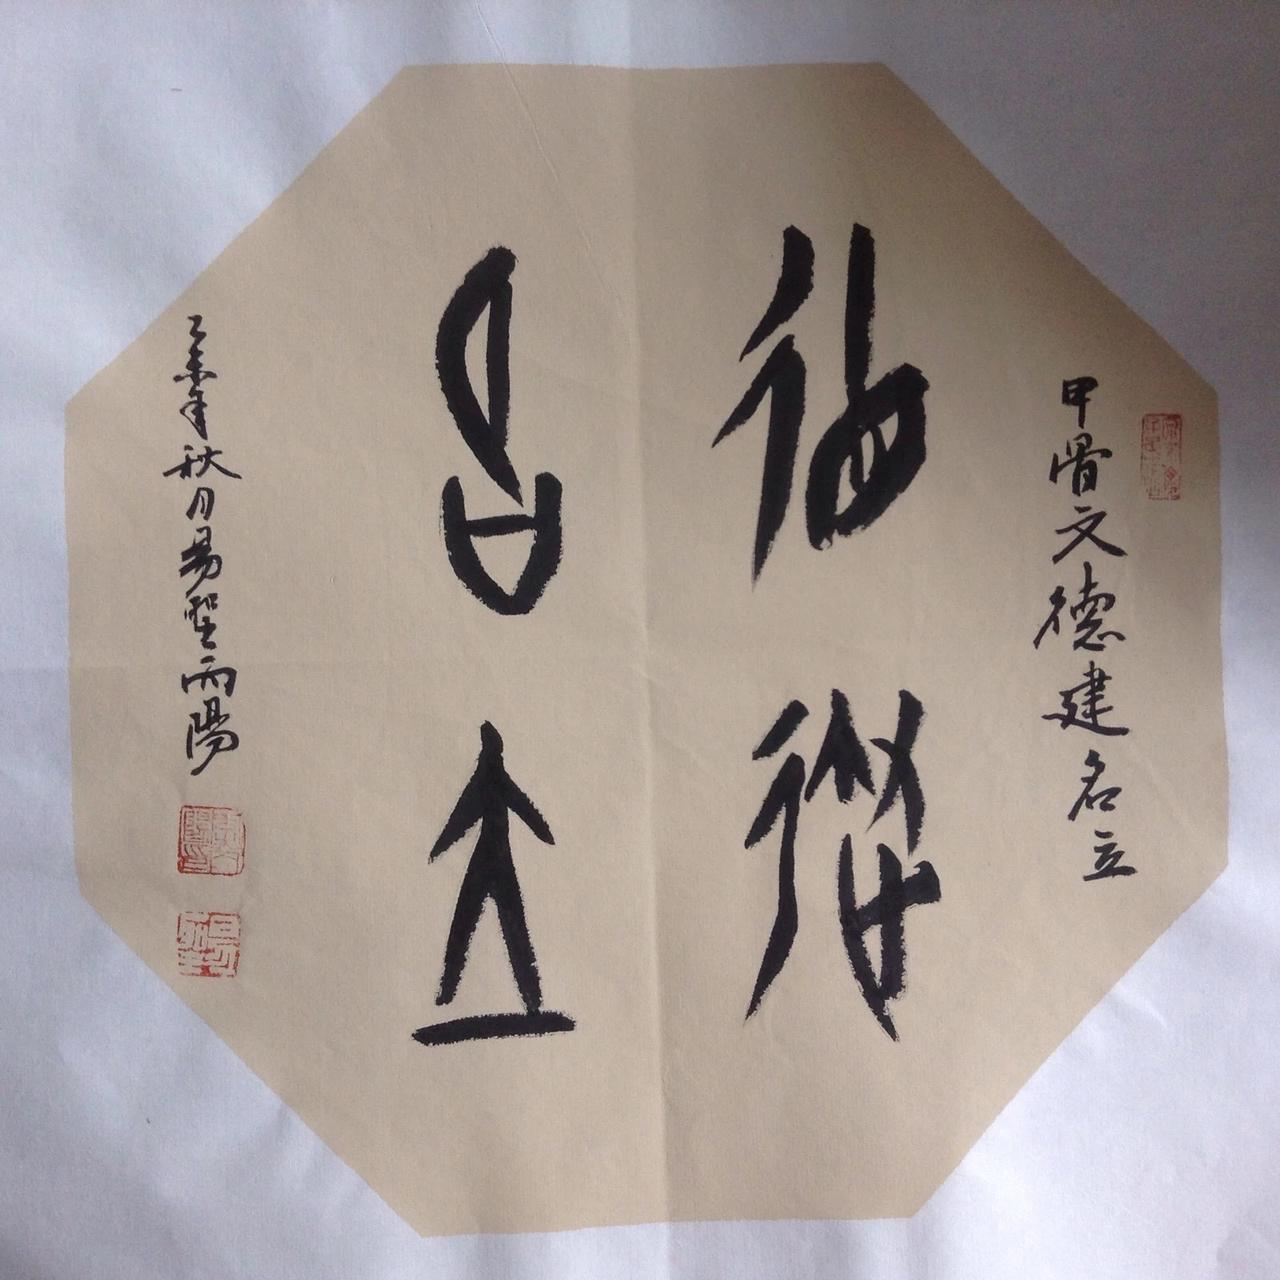 甲骨文德建名立
德建
名立
乙未年秋月易聖雨陽